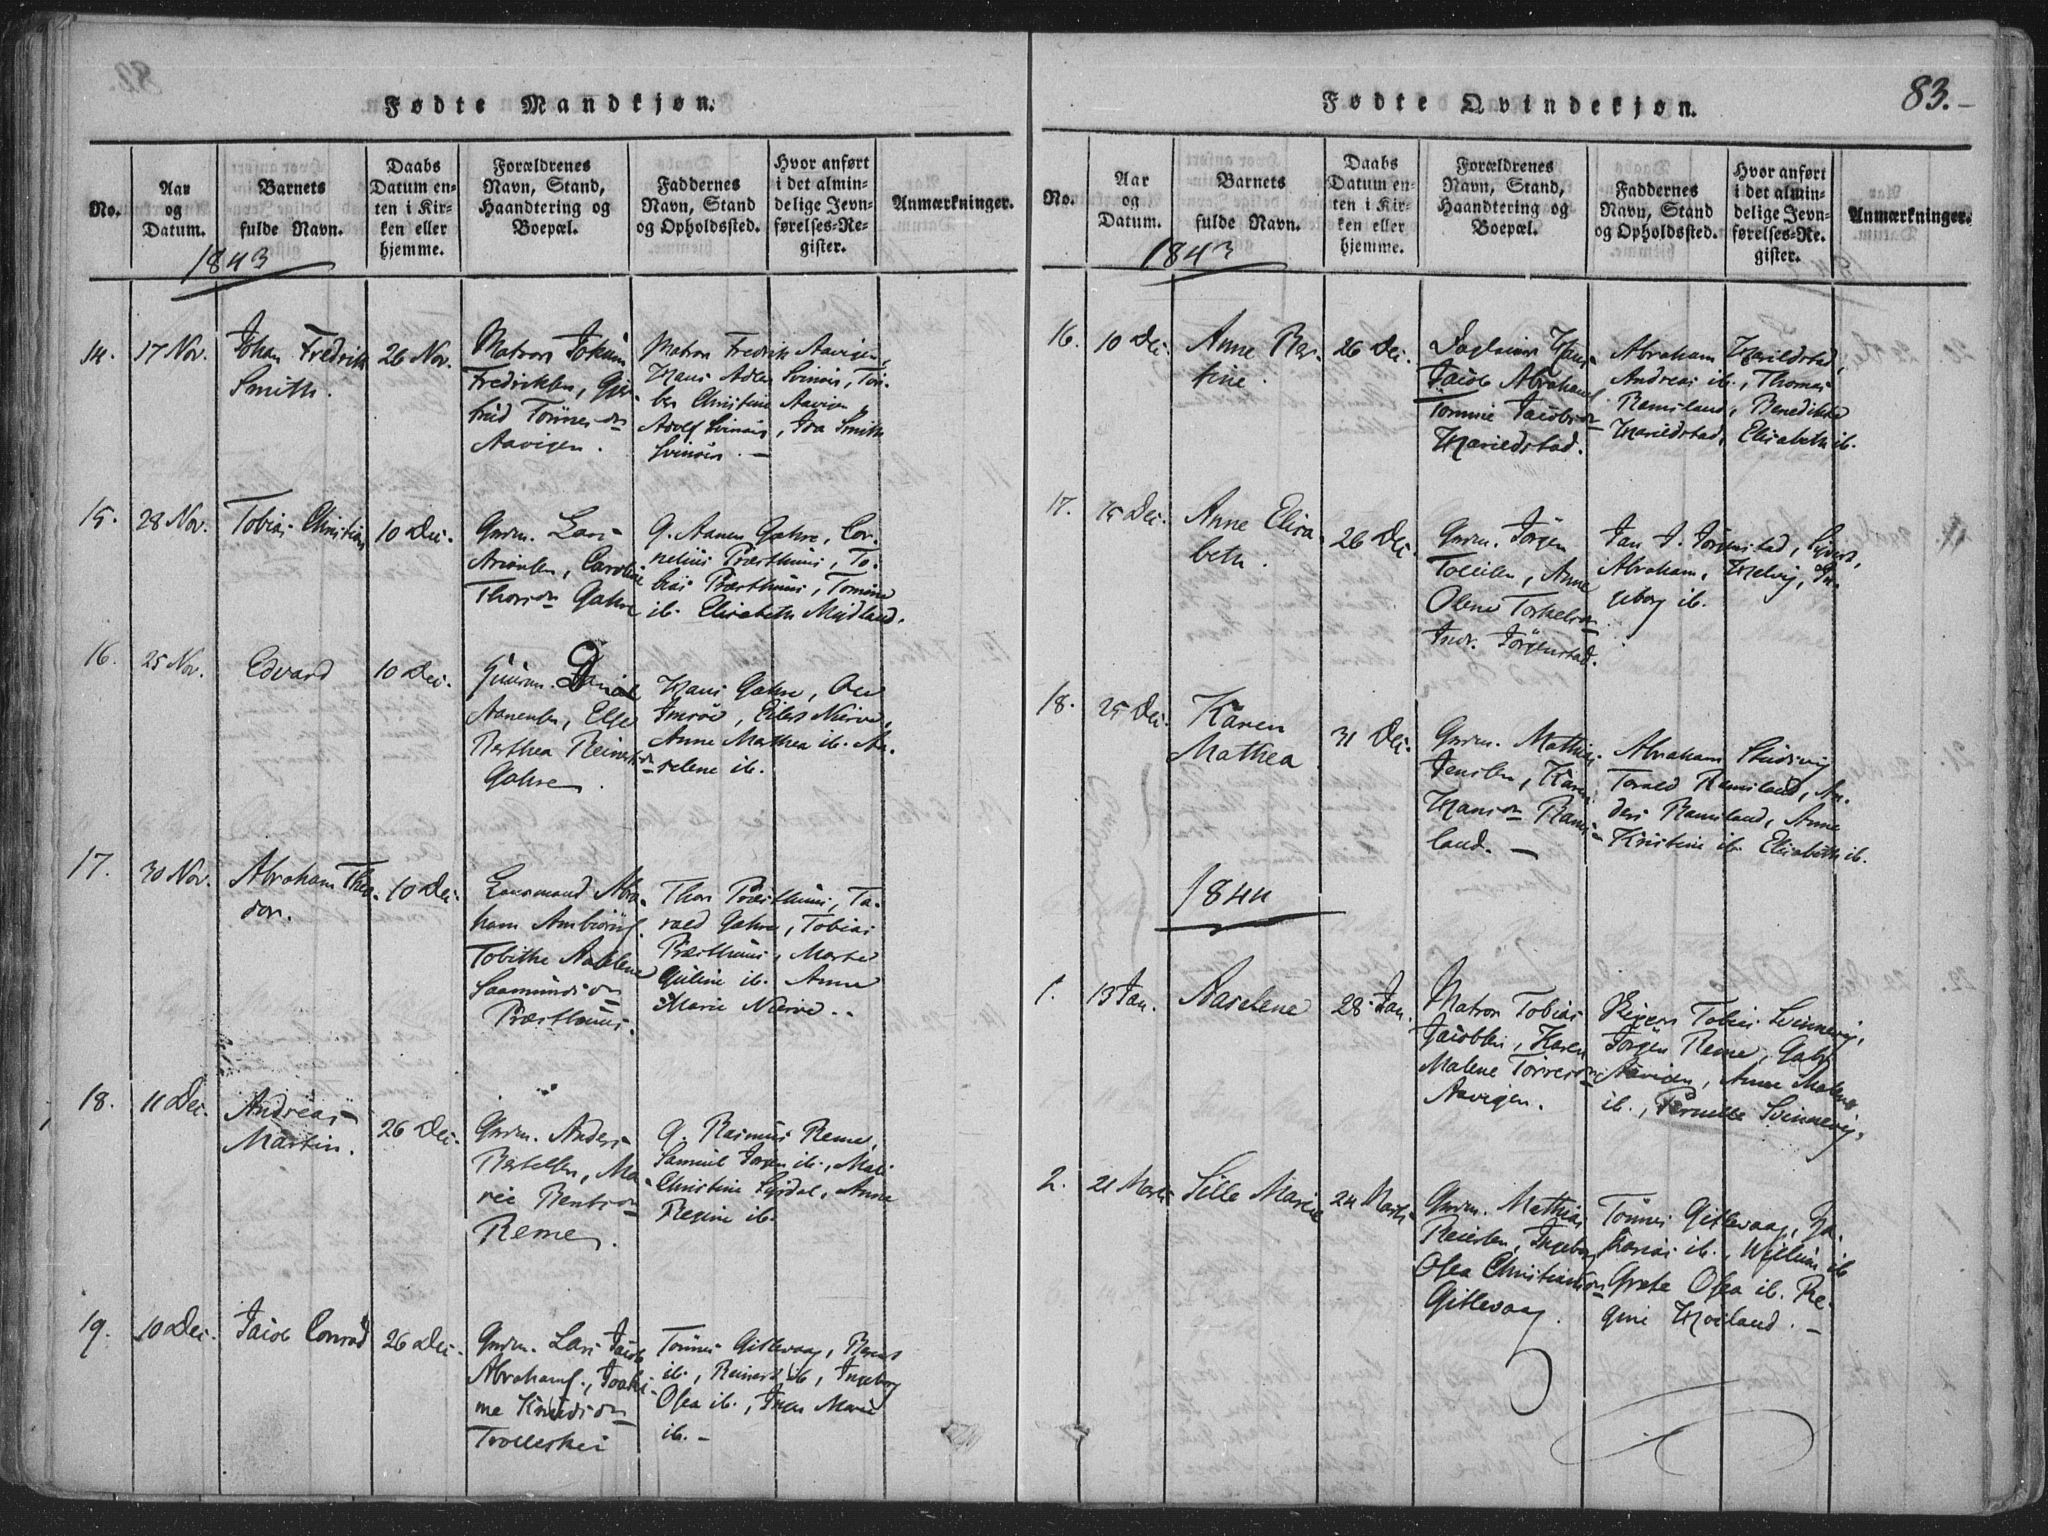 Fødte Mandkjøn.
No.
Aar
og
Datum.
Barnets
fulde Navn.
Daabs
Datum en-
ten i Kir-
ken eller
hjemme.
Forældrenes
Navn, Stand,
Haandtering og
Boepæl.
Faddernes
Navn, Stand
og Opholdssted.
Hvor anført
i det almin-
delige Jevn-
førelses-Re-
gister.
Anmærkninger.
1843
14.
17 Nov.
Johan Fredrik
Smith.
26 Nov.
Matros Jokum
Fredriksen, Gjer-
trud Tönnesdr
Aavigen.
Matros Fredrik Aavigen,
Hans Adler Svinöis, Tor-
ber Christine Aavigen,
Adolf Svinöis, Ida Smith
Svinöis. —
15.
28 Nov.
Tobias Christian
10 Dec.
Gmdm. Lars
Ariansen, Caroline
Thorsdr Gahre
G. Aanen Gahre, Cor-
nelius Præsthuus, To-
bias Præsthuus, Tomine
ib. Elisabeth Midland.
16.
25 Nov.
Edvard
10 Dec.
Daniel
Aanensen, Else
Berthea Reiersdr
Gahre.
Hans Gahre, Ole
Imröe, Eilert Nierve,
Anne Marthea ib. A-
selene ib.
17.
30 Nov.
Abraham Theo-
dor.
10 Dec.
Landmand Abra-
ham Ambiörns.
Tobithe Aaselene
Saamundsdr
Præsthuus.
Thor Præsthuus, Ta-
rald Gahre, Tobias
Præsthuus, Marte
Guline ib. Anne
Marie Nierve. .
18.
11 Dec.
Andreas
Martin.
26 Dec.
Gmdm. Anders
Bertelsen, Ma-
rie Berntsdr
Reme.
G. Rasmus Reme,
Samuel Jörgen ib., Mari
Christine Syrdal, Anne
Regine ib.
19.
10 Dec.
Jacob Conrad
26 Dec.
Gmdm. Lars Jacob
Abrahams., Joaki-
me Knudsdr
Trolleskei
Tönnes Gitlevaag, Bernt
ib., Reinert ib, Ingeborg
Osea ib., Inger Marie
ib. —
Fødte Qvindekjøn.
83. —
No.
Aar
og
Datum.
Barnets
fulde Navn.
Daabs
Datum en-
ten i Kir-
ken eller
hjemme.
Forældrenes
Navn, Stand,
Haandtering og
Boepæl.
Faddernes
Navn, Stand
og Opholdssted.
Hvor anført
i det almin-
delige Jevn-
førelses-Re-
gister.
Anmærkninger.
1843
16.
10 Dec.
Anne Ber-
tine.
26 Dec.
Daglejer Hans
Jacob Abrahams.
Tomine Jacobsdr
Harildstad.
Abraham Harildstad,
Andreas ib., Thomas
Ramsland, Benedikte
Harildstad, Elisabeth ib.
17.
15 Dec.
Anne Elisa-
beth.
26 Dec.
Gmdm. Jörgen
Tollisen, Anne
Olene Torkelsdr
Indr. Jörgenstad.
Jan J. Jörgenstad, Sivert,
Abraham, Helvig, In-
geborg ib.
18.
25 Dec.
Karen
Mathea
31 Dec.
Gmdm. Mathias
Jensen, Karen
Hansdr Rams-
land. —
Abraham Studevig
Torald Ramsland, An-
ders Ramsland, Anne
Kristine ib. Elisabeth ib.
1844
1.
13 Jan.
Aaselene
28 Jan.
Matros Tobias
Jacobsen, Karen
Malene Torresdr
Aavigen.
Reier Tobias Svinnevig,
Jörgen Reme, Gabr.
Aavigen, Anne Malene
ib., Pernille Svinnevig.
2.
21 Marts
Sille Marie
24 Marts
Gmdm. Mathias
Reiersen, Ingeborg
Osea Christiansdr
Gitlevaag.
Tönnes Gitlevaag, Za-
karias ib., Willum ib
Grete Osea ib. Re-
gine Höiland. —